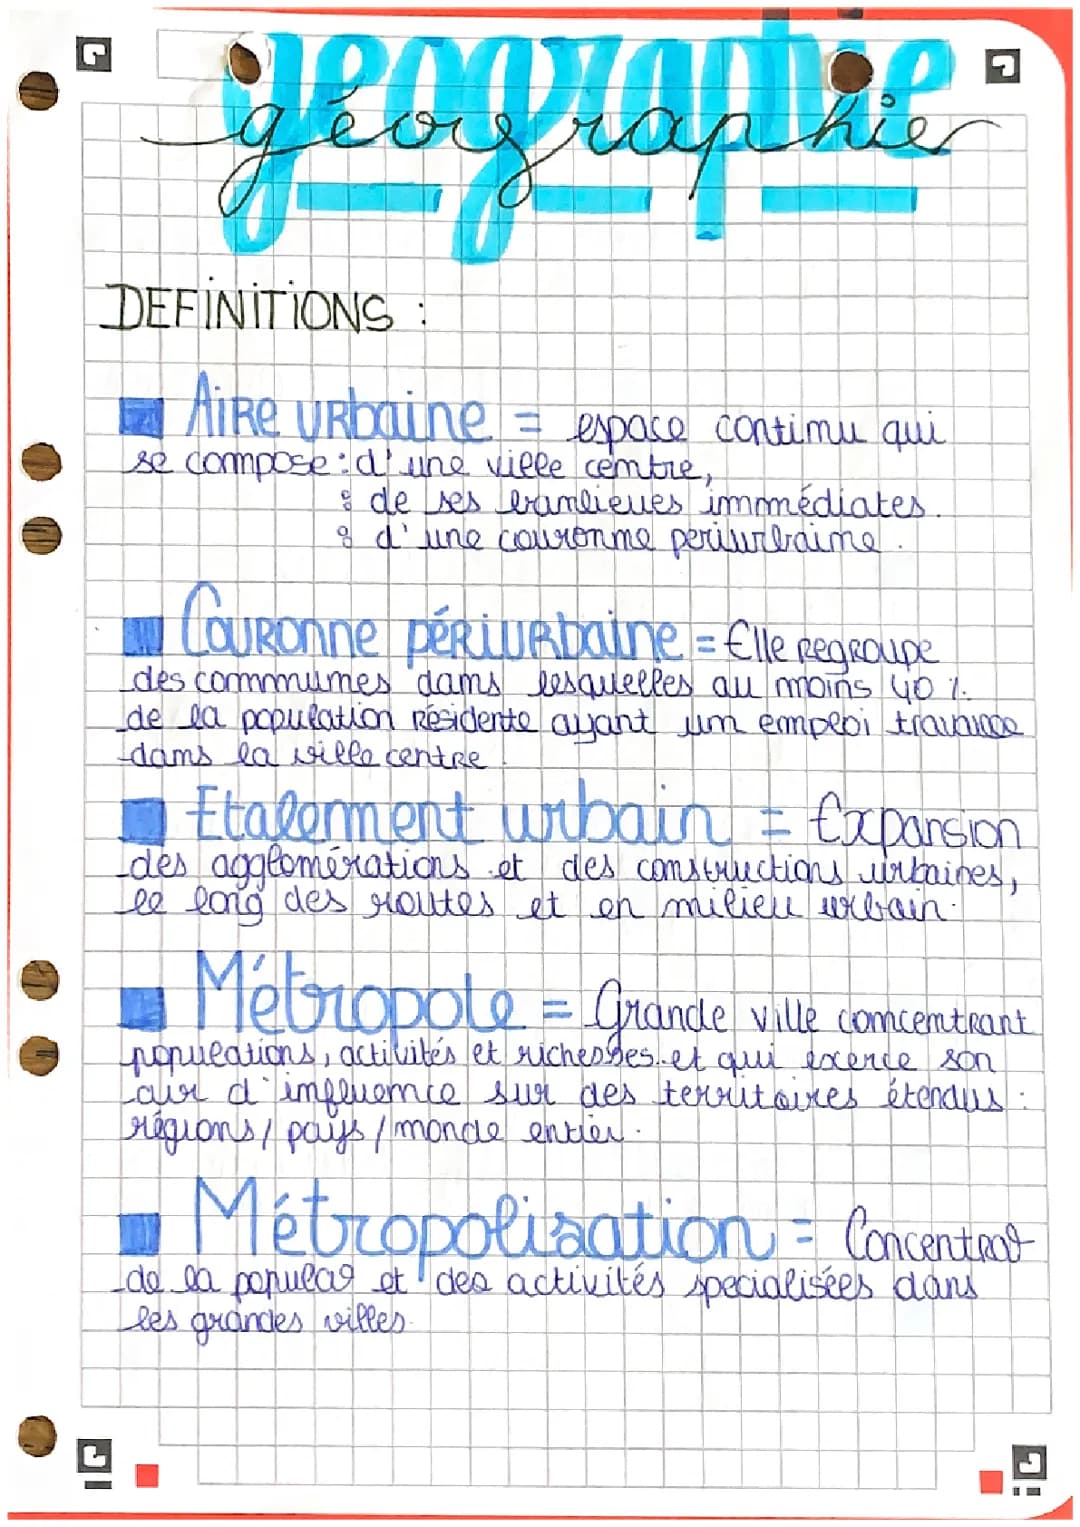 géographie
DEFiNiTiONS :
AiRe URbaine = espace continu qui
se compose : d'une ville centre,
de ses banlieues immédiates.
d'une couronne periurbaine.
Couronne périurbaine = Elle regroupe
des communes dans lesquelles au moins 40 %
de la population résidente ayant un emploi travaille
dans la ville centre.
Etalement urbain = Expansion
des agglomérations et des constructions urbaines,
le long des routes et en milieu urbain.
Métropole = Grande ville concentrant
populations, activités et richesses et qui exerce son
air d'influence sur des territoires étendus :
régions / pays / monde entier.
Métropolisation = Concentrat°
de la populat° et des activités specialisées dans
les grandes villes.